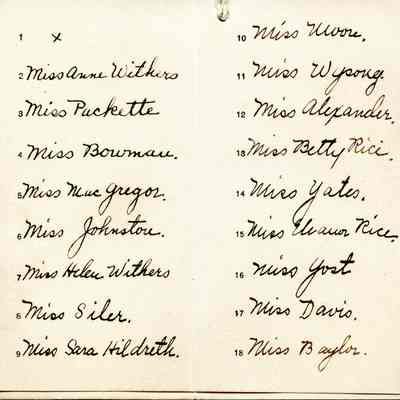 1 x
2 Miss Anne Withers
3 Miss Puckette
4 Miss Bowman.
5 Miss MacGregor.
6 Miss Johnston.
7 Miss Helen Withers
8 Miss Siler.
9 Miss Sara Hildreth.
10 Miss Moore.
11 Miss Wysong
12 Miss Alexander.
13 Miss Betty Rice.
14 Miss Yates.
15 Miss Eleanor Rice.
16 Miss Yost
17 Miss Davis.
18 Miss Baylor.